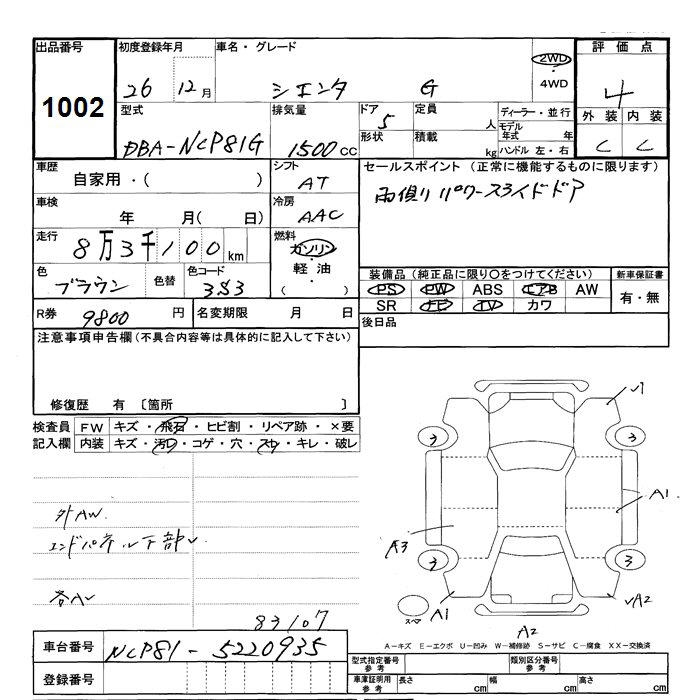 出品番号 初度登録年月 車名・グレード 2WD 評価点
1002 26 12月 シエンタ G 4WD 4
型式 排気量 ドア 定員 ディーラー・並行 外装 内装
DBA-NCP81G 1500cc 5 人 モデル年式 年 C C
形状 積載 kg ハンドル 左・右
車歴 シフト セールスポイント (正常に機能するものに限ります)
自家用・( ) AT 両側パワースライドドア
車検 冷房
年 月( 日) AAC
走行 燃料
8万3千100km ガソリン
・
軽油
・
( )
色 色替 色コード 装備品 (純正品に限り○をつけてください) 新車保証書
ブラウン 3S3 PS PW ABS エアB AW 有・無
SR ナビ TV カワ
R券 9800円 名変期限 月 日 後日品
注意事項申告欄 (不具合内容等は具体的に記入して下さい)
修復歴 有 〔箇所 〕
検査員 FW キズ・飛石・ヒビ割・リペア跡・×要
記入欄 内装 キズ・汚レ・コゲ・穴・スレ・キレ・破レ
外AW
エンドパネル下部
83107
√1
3 3
A1
A3
3 3
スペア A1 √A2
A2
A-キズ E-エクボ U-凹み W-補修跡 S-サビ C-腐食 XX-交換済
車台番号 NCP81-5220935
登録番号
型式指定番号 参考 類別区分番号 参考
車庫証明用 参考 長さ cm 幅 cm 高さ cm